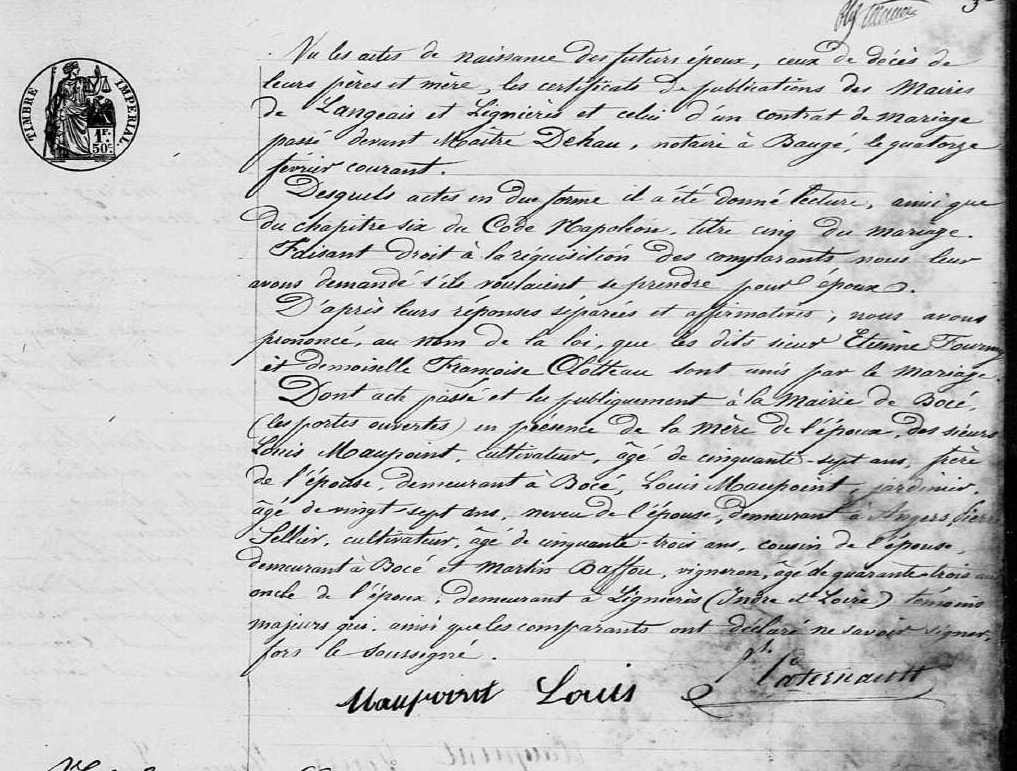 TIMBRE IMPERIAL.
1F.
50C.
Vu les actes de naissance des futurs époux, ceux de décès de
leurs pères et mère, les certificats de publications des Maires
de Langeais et Lignières et celui d'un contrat de mariage
passé devant Maître Dehau, notaire à Baugé, le quatorze
février courant.
Desquels actes en due forme il a été donné lecture, ainsi que
du chapitre six du Code Napoléon, titre cinq du mariage.
Faisant droit à la réquisition des comparants nous leur
avons demandé s'ils voulaient se prendre pour époux.
D'après leurs réponses séparées et affirmatives, nous avons
prononcé, au nom de la loi, que les dits sieur Etienne
et demoiselle Françoise sont unis par le mariage.
Dont acte passé et lu publiquement à la Mairie de Bocé,
(les portes ouvertes) en présence de la mère de l'époux, des sieurs
Louis Maupoint, cultivateur, âgé de cinquante-sept ans, frère
de l'épouse demeurant à Bocé, Louis Maupoint, jardinier,
âgé de vingt-sept ans, neveu de l'épouse, demeurant à Angers, Pierre
Sellier, cultivateur, âgé de cinquante-trois ans, cousin de l'épouse,
demeurant à Bocé et Martin Baffou, vigneron, âgé de quarante-trois ans
oncle de l'époux, demeurant à Lignières (Indre et Loire) témoins
majeurs qui, ainsi que les comparants ont déclaré ne savoir signer,
fors le soussigné.
Maupoint Louis